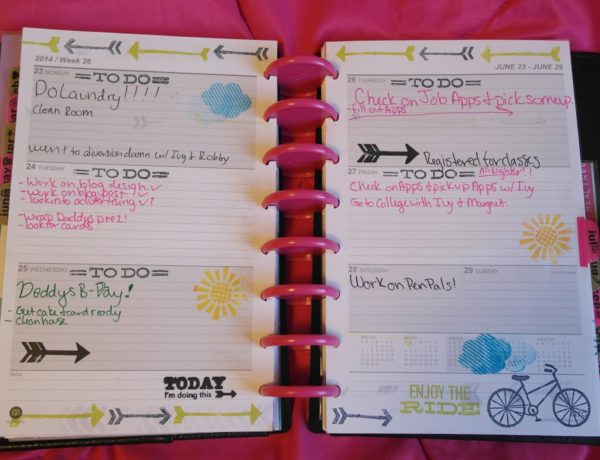 2014 / Week 26
23 MONDAY
=TO DO=
Do Laundry!!!!
Clean Room.
went to diversion damn w/ Ivy & Robby
24 TUESDAY
- Work on blog design ✓
- work on blog post ✓
- look into advertising ✓
- wrap Daddys prez!
- look for cards
25 WEDNESDAY
=TO DO=
Daddy's B-Day!
- Get cake & card ready
- Clean house
Notes
TODAY
I'm doing this
JUNE 23 - JUNE 29
26 THURSDAY
=TO DO=
Check on Job Apps & pick some up.
fill out Apps
Registered for classes
27 FRIDAY
=TO DO=
All-Nighter!!
Check on Apps & pick up Apps w/ Ivy
Go to College with Ivy & Margret.
28 SATURDAY
29 SUNDAY
Work on Pen Pals!
ENJOY THE
RIDE